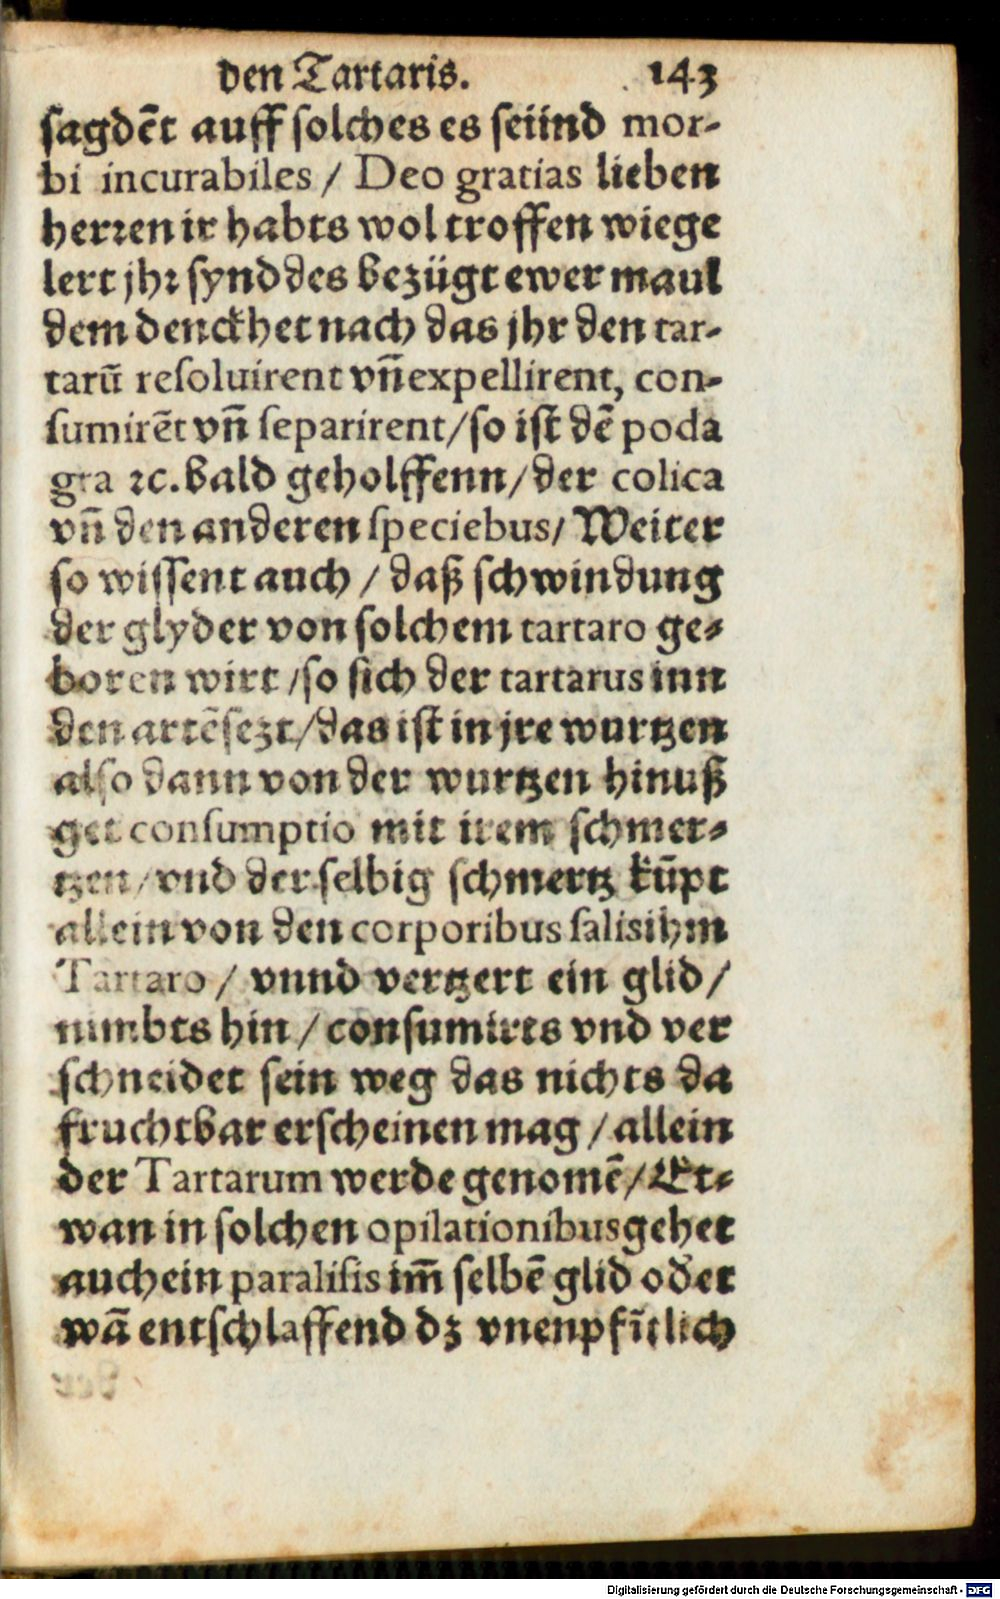 den Tartaris. 143
sagdẽt auff solches es seiind mor-
bi incurabiles / Deo gratias lieben
herꝛen ir habts wol troffen wiege
lert jhꝛ synd des bezügt ewer maul
dem denckhet nach das jhr den tar-
tarũ resoluirent vñ expellirent, con-
sumirẽt vñ separirent / so ist dẽ poda
gra ꝛc. bald geholffenn / der colica
vñ den anderen speciebus / Weiter
so wissent auch / daß schwindung
der glyder von solchem tartaro ge-
boren wirt / so sich der tartarus inn
den artẽ sezt / das ist in jre wurtzen
also dann von der wurtzen hinuß
get consumptio mit irem schmer-
tzen / vnd der selbig schmertz kũpt
allein von den corporibus salis ihm
Tartaro / vnnd vertzert ein glid /
nimbts hin / consumirts vnd ver
schneidet sein weg das nichts da
fruchtbar erscheinen mag / allein
der Tartarum werde genomẽ / Et-
wan in solchen opilationibus gehet
auch ein paralisis im̃ selbẽ glid oder
wã entschlaffend dz vnenpfĩtlich
Digitalisierung gefördert durch die Deutsche Forschungsgemeinschaft - DFG